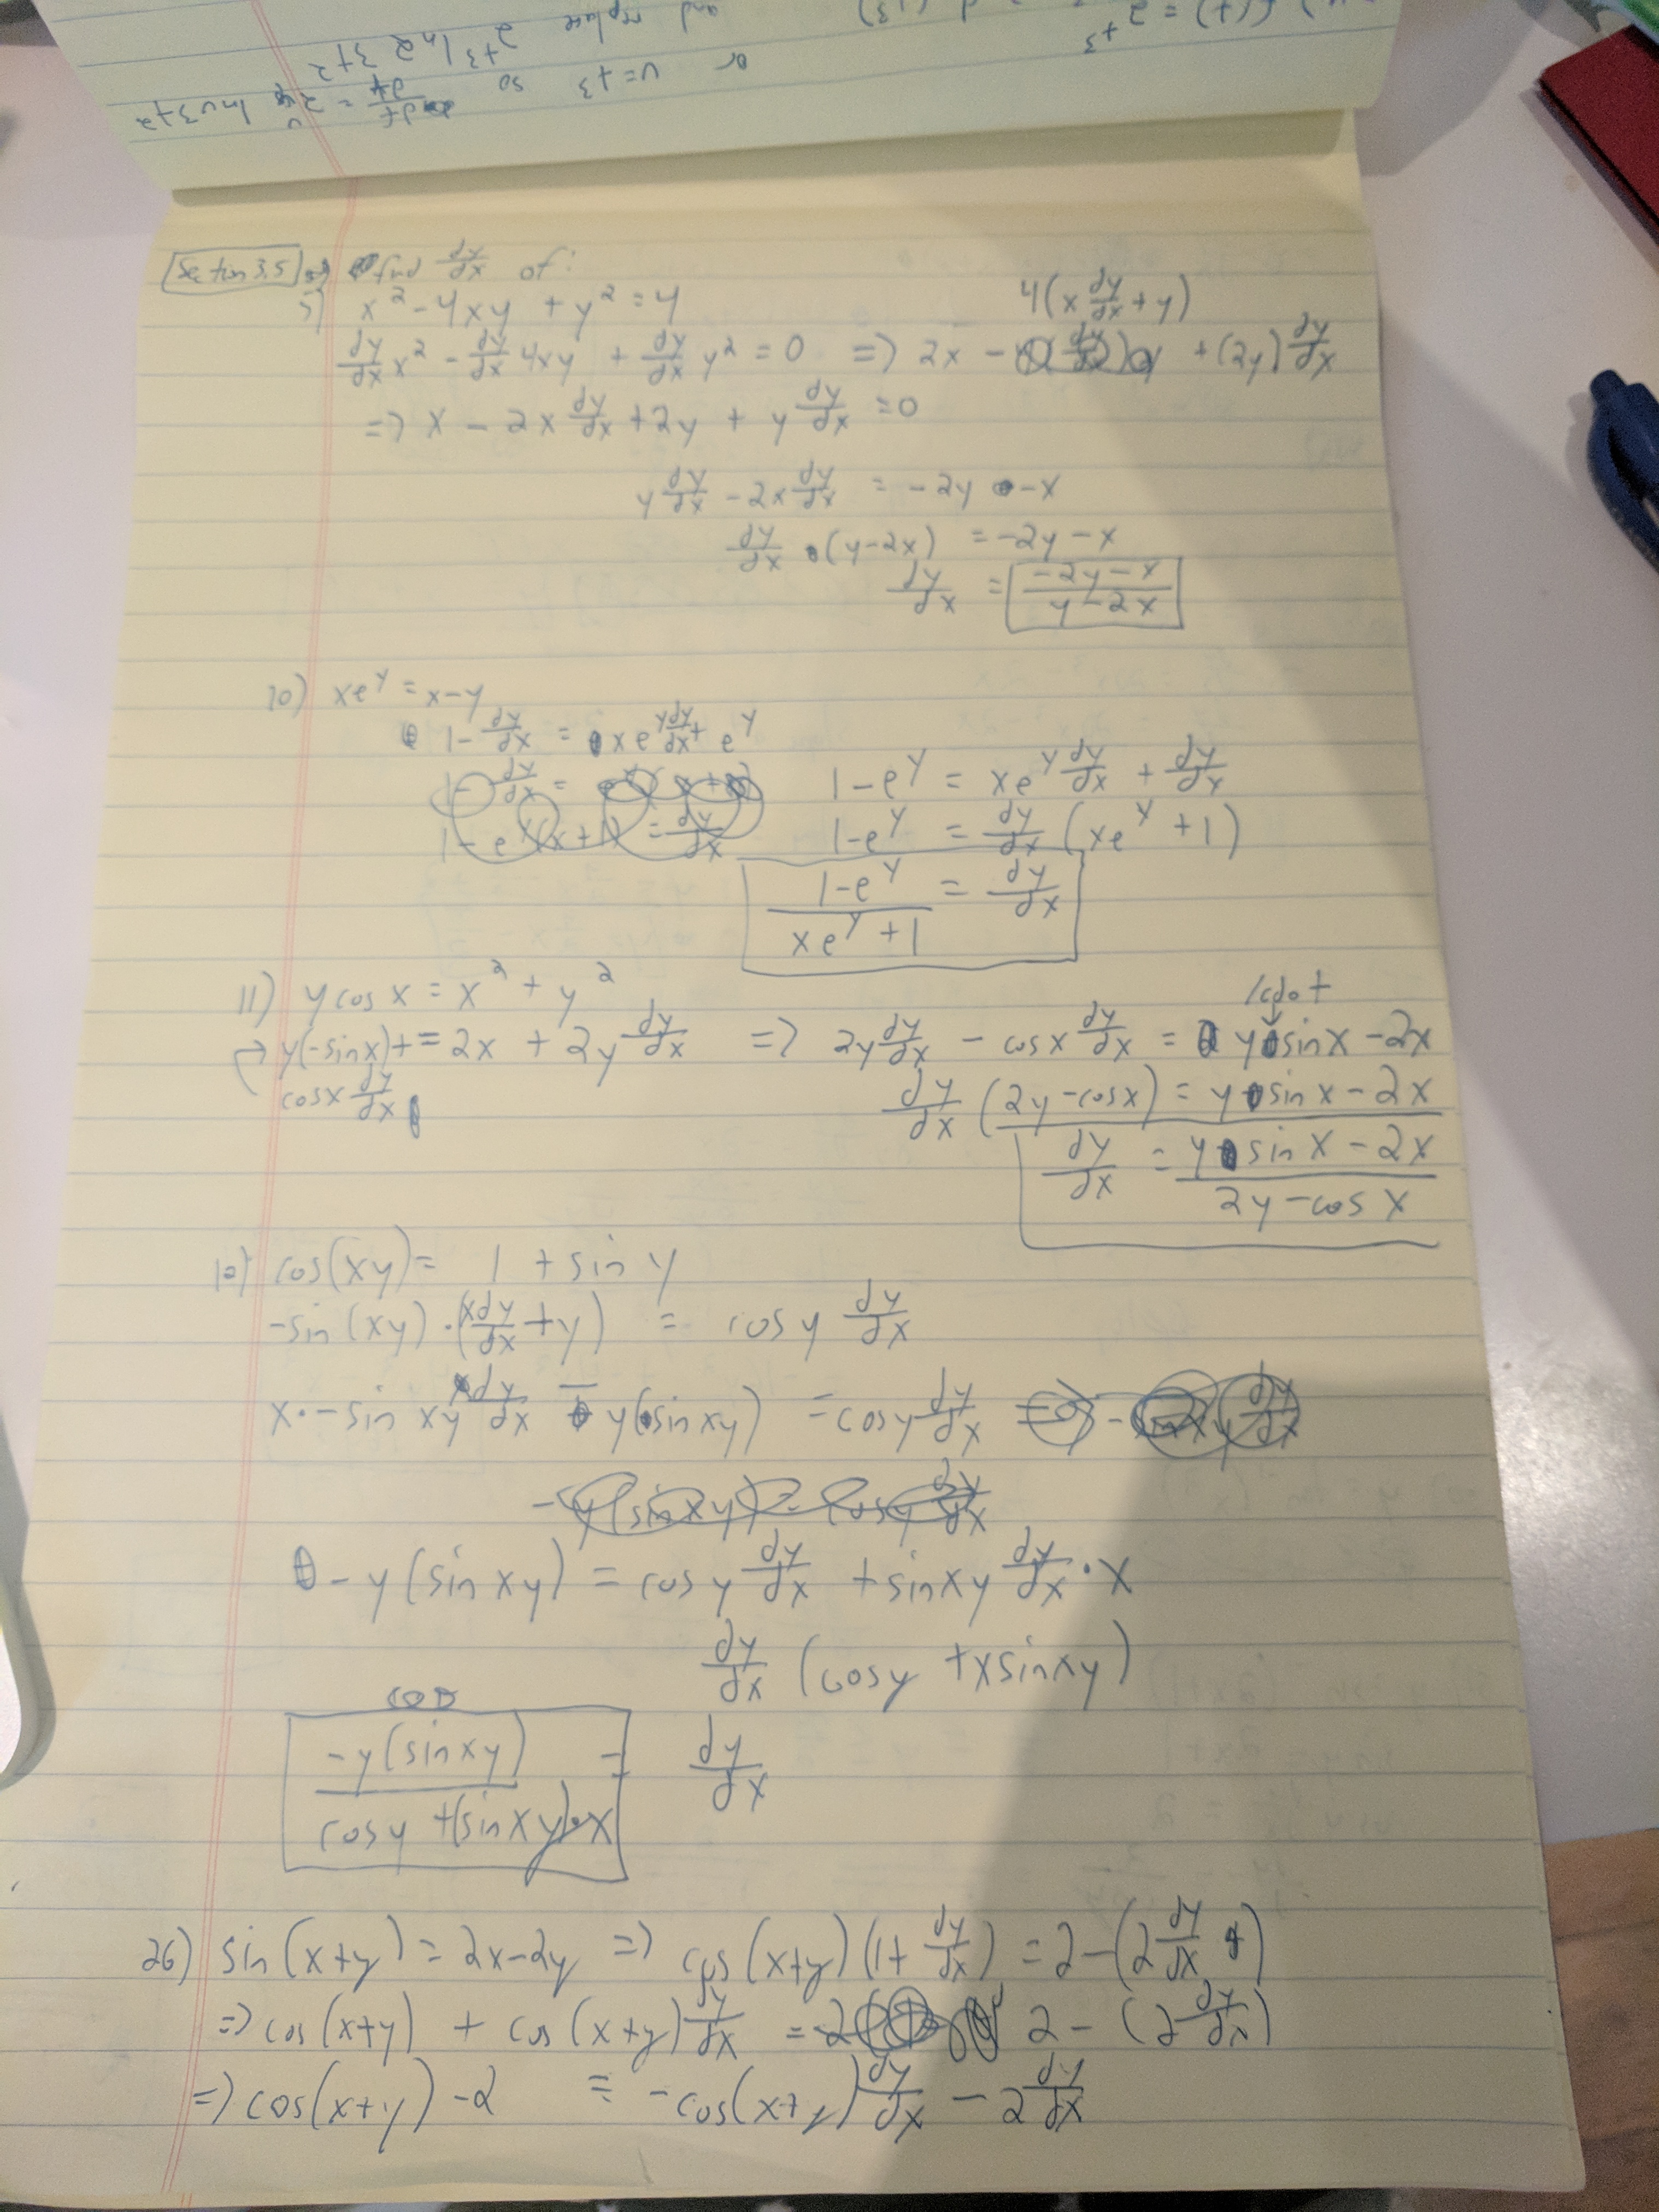 or u=t3 so df/dt = 2^u ln u 3t2
2t3 ln2 3t2
and replace
Section 3.5 find dy/dx of:
5) x² - 4xy + y² = 4
4(x dy/dx + y)
dy/dx x² - dy/dx 4xy + dy/dx y² = 0 => 2x - + (2y) dy/dx
=> x - 2x dy/dx + 2y + y dy/dx = 0
y dy/dx - 2x dy/dx = -2y - x
dy/dx (y-2x) = -2y - x
dy/dx = (-2y-x)/(y-2x)
10) xe^y = x-y
1 - dy/dx = xe^y dy/dx + e^y
1 - dy/dx = 
1 - e^y = xe^y dy/dx + dy/dx
1 - e^y(x+1) = dy/dx
1-e^y = dy/dx (xe^y + 1)
(1-e^y)/(xe^y+1) = dy/dx
11) y cos x = x² + y²
\cdot
y(-sinx)+ = 2x + 2y dy/dx => 2y dy/dx - cosx dy/dx = y sinx - 2x
cosx dy/dx
dy/dx (2y-cosx) = y sin x - 2x
dy/dx = (y sin x - 2x)/(2y-cos x)
12) cos(xy) = 1 + sin y
-sin(xy)·(x dy/dx + y) = cos y dy/dx
x·-sin xy dy/dx - y(sinxy) = cosy dy/dx
-y(sinxy) = cosy dy/dx
-y(sin xy) = cosy dy/dx + sinxy dy/dx · x
dy/dx (cosy + xsinxy)
cos
-y(sinxy)/(cosy + (sinxy)·x) = dy/dx
26) sin(x+y) = 2x-2y => cos(x+y)(1+ dy/dx) = 2-(2 dy/dx)
=> cos(x+y) + cos(x+y) dy/dx = 2 - (2 dy/dx)
=> cos(x+y) -2 = -cos(x+y) dy/dx - 2 dy/dx